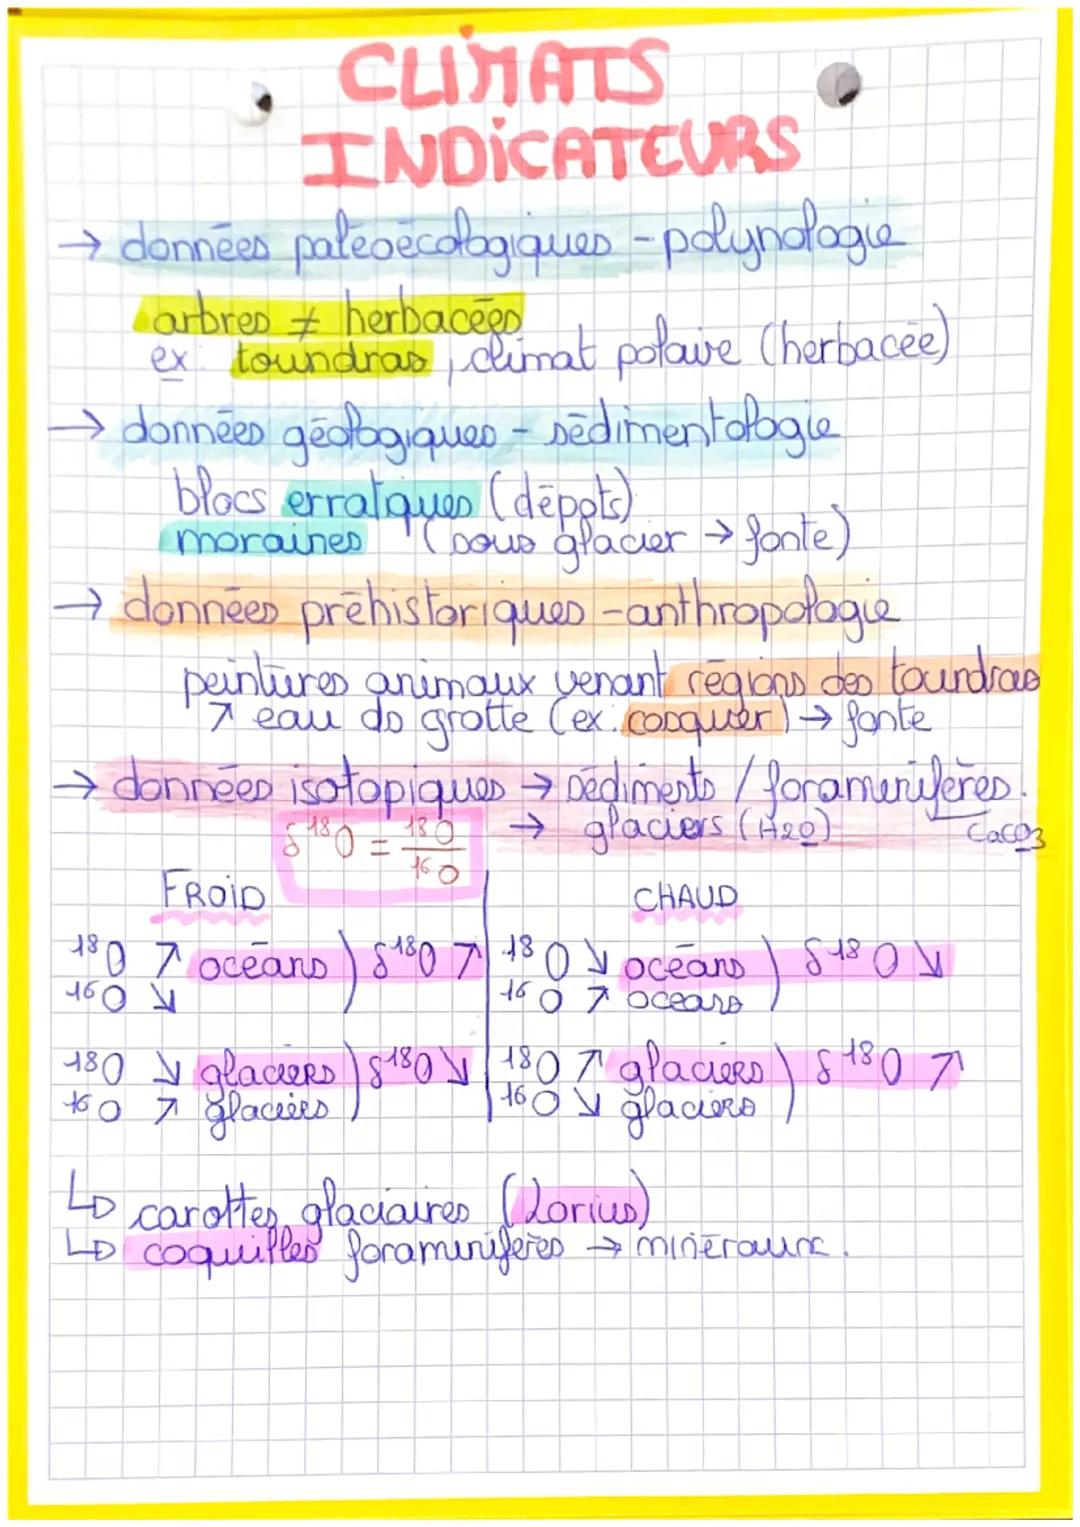 CLIMATS
INDICATEURS
→ données paléoécologiques - polynologie
arbres ≠ herbacées
ex: toundras, climat polaire (herbacée)
→ données géologiques - sédimentologie
blocs erratiques (dépots)
moraines " (sous glacier → fonte)
→ données préhistoriques - anthropologie
peintures animaux venant régions des toundras
↗ eau ds grotte (ex: cosquer) → fonte
→ données isotopiques → sédiments / foramenifères.
δ¹⁸O = ¹⁸O / ¹⁶O → glaciers (H2O) CaCO3
FROID CHAUD
¹⁸O ↗ océans ) δ¹⁸O ↗ ¹⁸O ↘ océans ) δ¹⁸O ↘
¹⁶O ↘ ¹⁶O ↗ oceans
¹⁸O ↘ glaciers ) δ¹⁸O ↘ ¹⁸O ↗ glaciers ) δ¹⁸O ↗
¹⁶O ↗ glaciers ¹⁶O ↘ glaciers
↳ carottes glaciaires (Lorius)
↳ coquilles foraminiferes → minéraux.